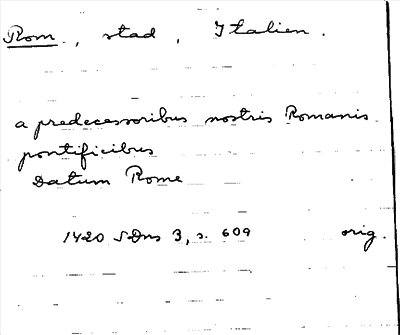 Rom., stad, Italien.
a predecessoribus nostris Romanis
pontificibus
Datum Rome
1420 SDns 3, s. 609 orig.